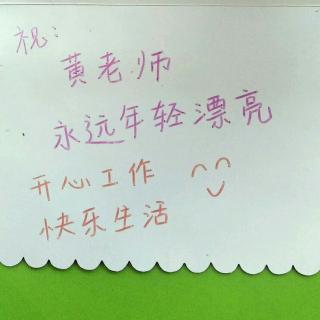 祝:
黄老师
永远年轻漂亮
开心工作
快乐生活